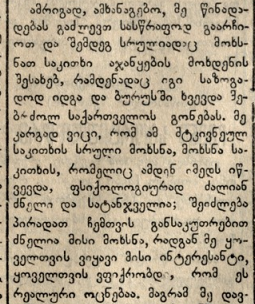 ამრიგად, ამხანაგებო, მე წინადა-
დებას გაძლევთ სასწრაფოდ გაარჩი-
ოთ და შემდეგ სრულიადაც მოხს-
ნათ საკითხი აჯანყების მოხდენის
შესახებ, რამდენადაც იგი საზოგა-
დოდ იდგა და ბურუსში ხვევდა მე-
ბრძოლ საქართველოს გონებას. მე
კარგად ვიცი, რომ ამ მტკივნეულ
საკითხის სრული მოხსნა, მოხსნა სა-
კითხის, რომელიც ამდენ იმედს იწ-
ვევდა, ფსიქოლოგიურად ძალიან
ძნელი და სატანჯველია; შეიძლება
პირადათ ჩემთვის განსაკუთრებით
ძნელია მისი მოხსნა, რადგან მე ყო-
ველთვის ვიყავი მისი ინტერესანტი,
ყოველთვის ვფიქრობდი, რომ ეს
რეალური ოცნებაა. მაგრამ მე დავ-